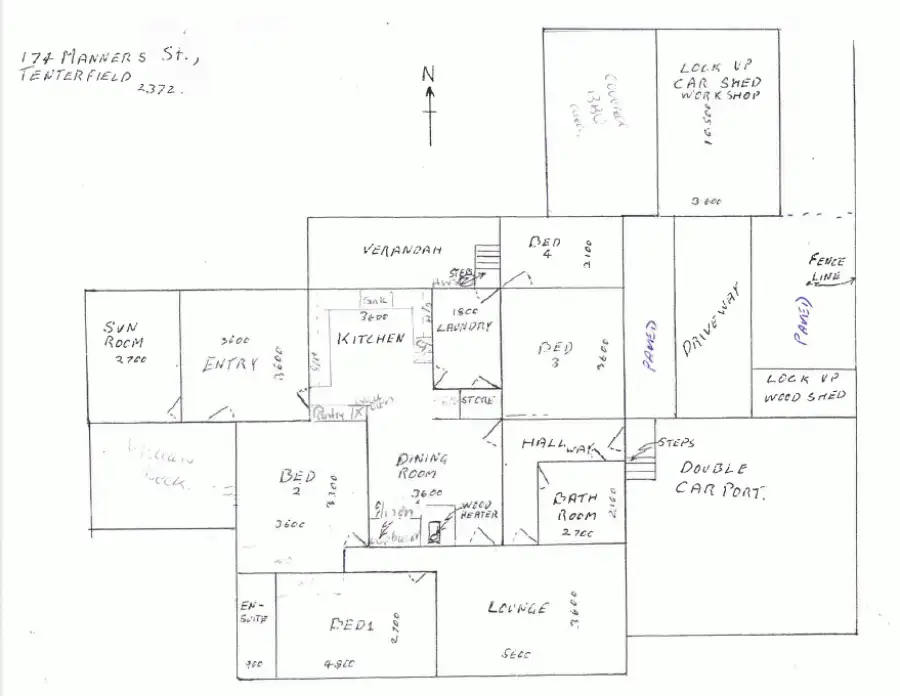 174 MANNERS St.,
TENTERFIELD
2372.
N
LOCK UP
CAR SHED
WORK SHOP
10.500
3600
VERANDAH
STEPS
BED
4
2100
FENCE
LINE
SUN
ROOM
2700
3600
ENTRY
3600
SINK
3600
KITCHEN
1800
LAUNDRY
BED
3
3600
PAVED
DRIVEWAY
PAVED
LOCK UP
WOOD SHED
Pantry
STORE
HALL WAY
STEPS
DOUBLE
CAR PORT.
BED
2
3300
3600
DINING
ROOM
3600
WOOD
HEATER
BATH
ROOM
2700
2100
EN-
SUITE
900
BED1
2700
4800
LOUNGE
3600
5600